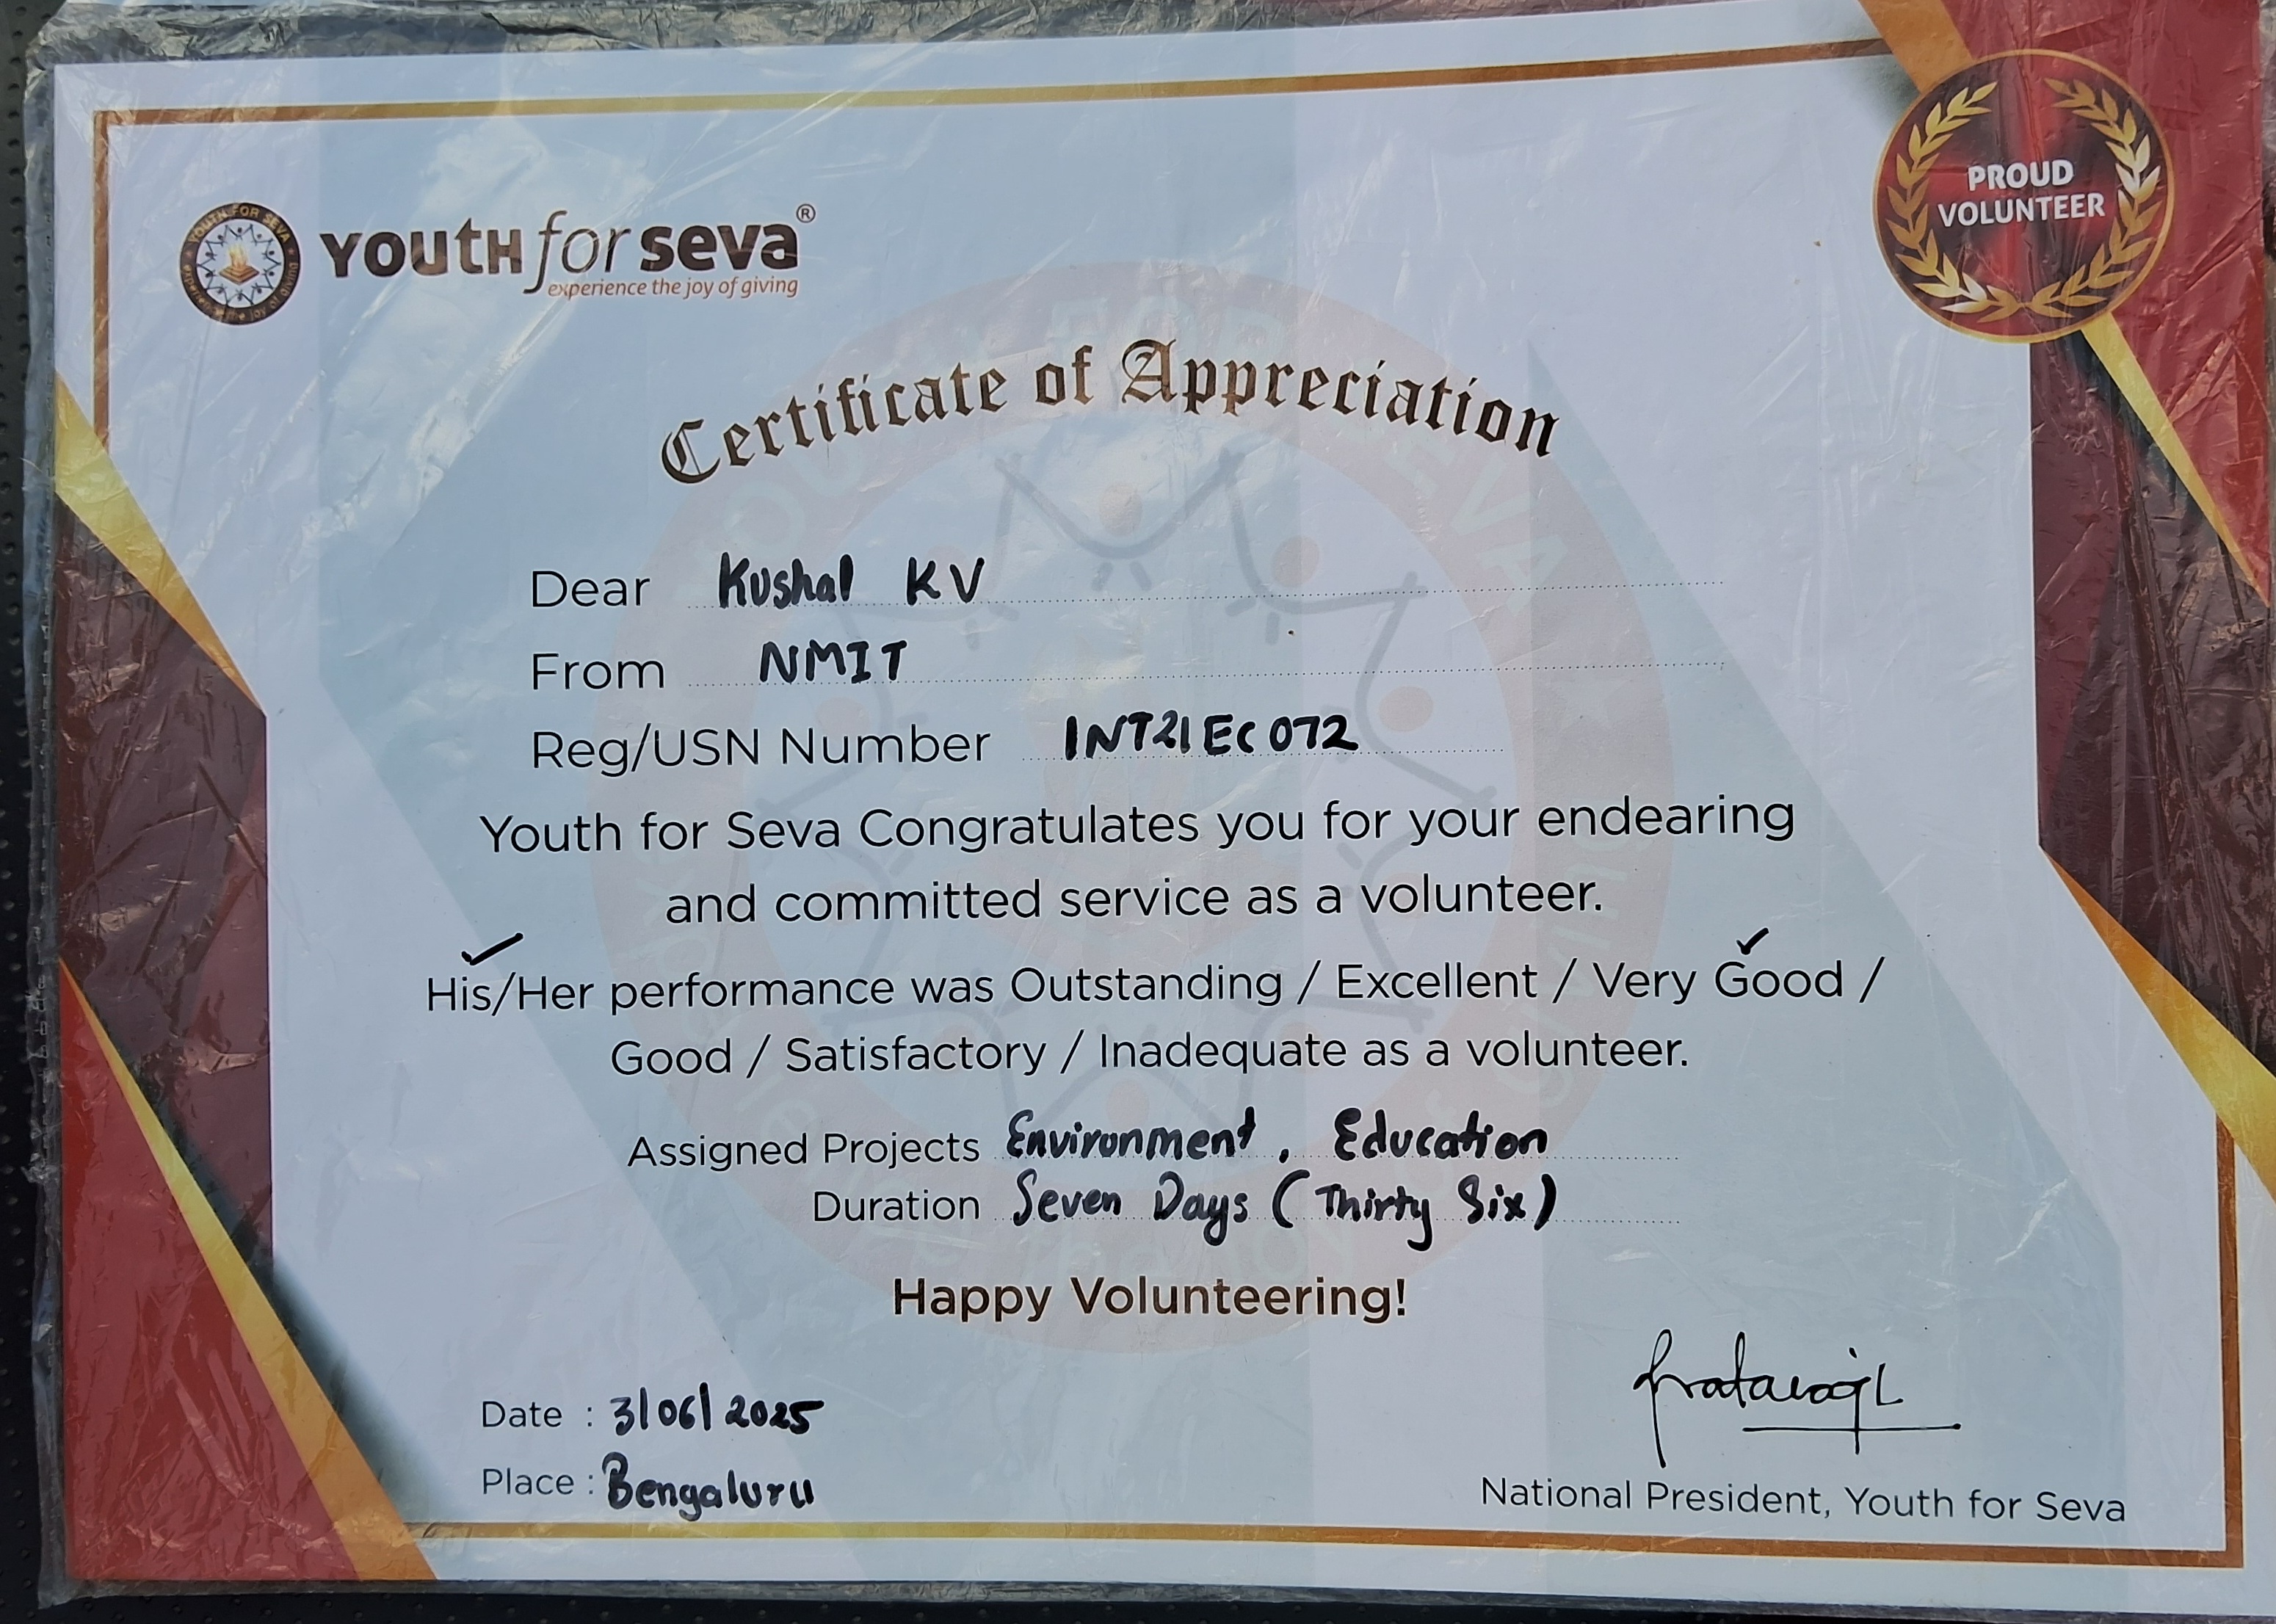 YOUTH FOR SEVA
experience the joy of giving
YOUTH for seva®
experience the joy of giving
PROUD
VOLUNTEER
Certificate of Appreciation
Dear Kushal KV
From NMIT
Reg/USN Number 1NT21EC072
Youth for Seva Congratulates you for your endearing
and committed service as a volunteer.
His/Her performance was Outstanding / Excellent / Very Good /
Good / Satisfactory / Inadequate as a volunteer.
Assigned Projects Environment, Education
Duration Seven Days (Thirty Six)
Happy Volunteering!
Date : 3/06/2025
Place : Bengaluru
National President, Youth for Seva